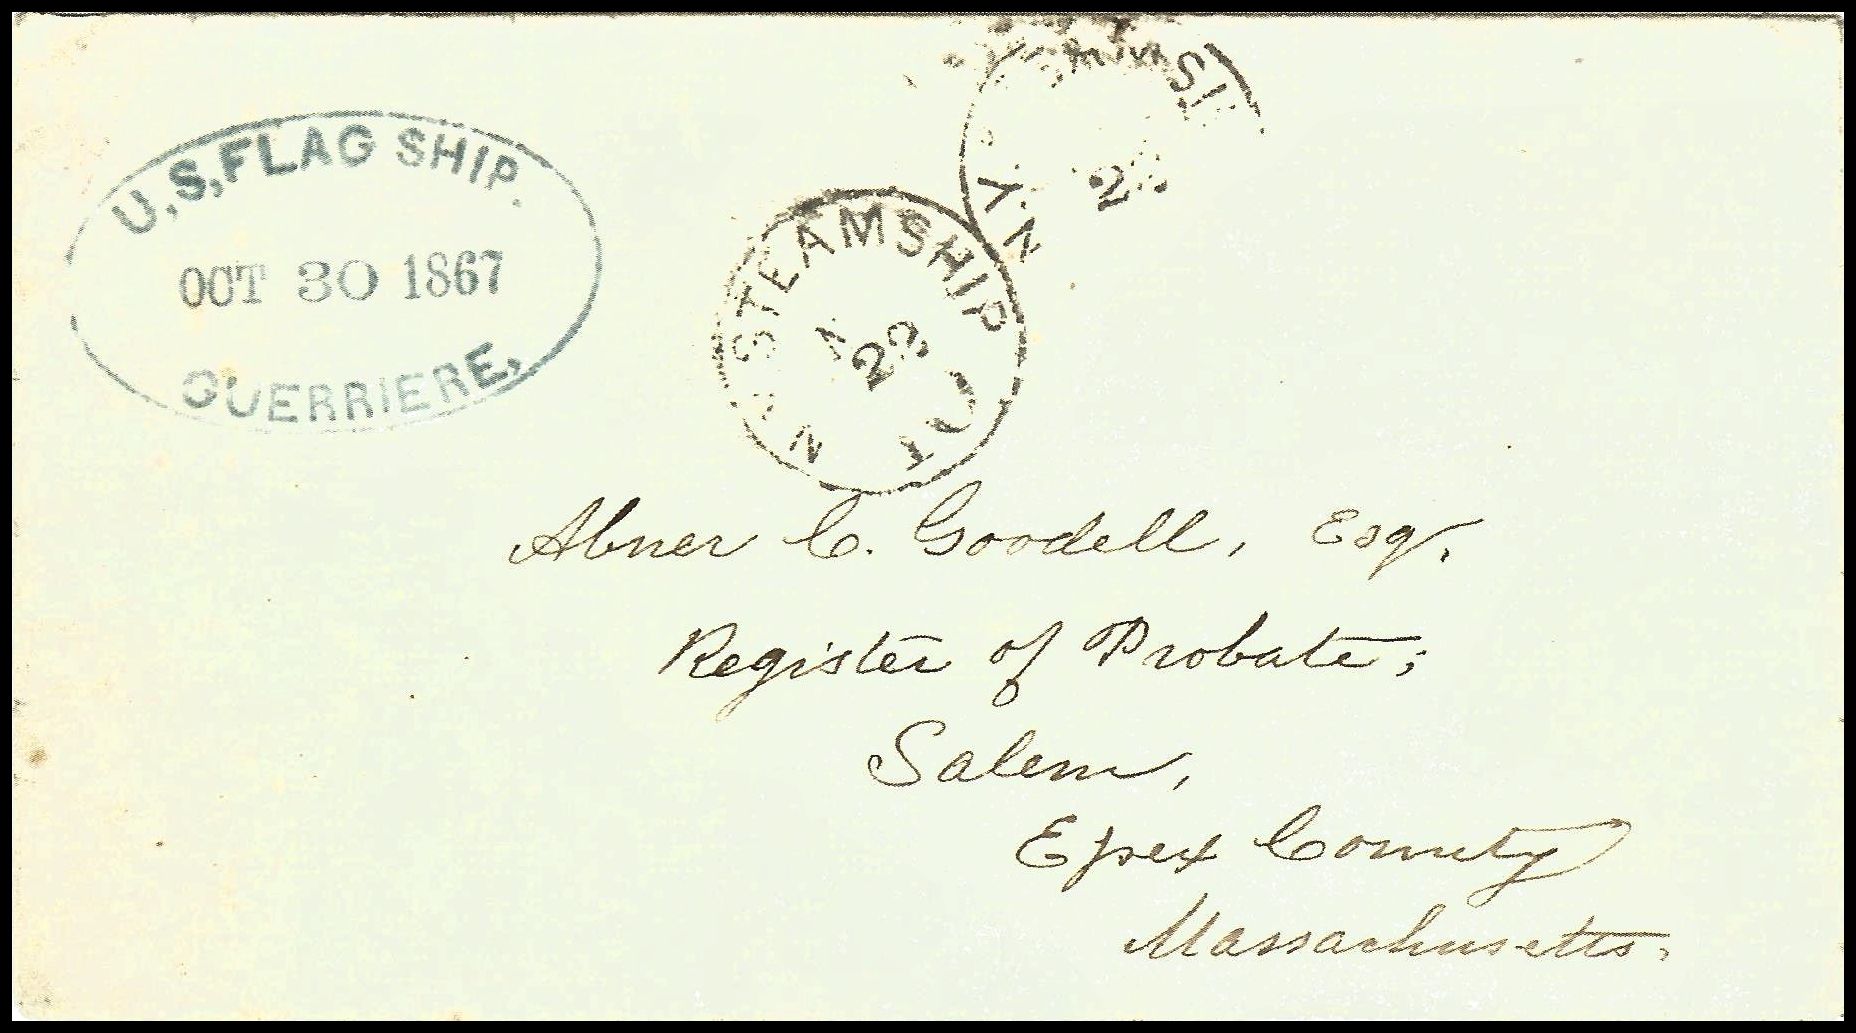 U.S. FLAG SHIP.
OCT 30 1867
GUERRIERE,
N.Y. STEAMSHIP
22
N.Y.
22
Abner C. Goodell, Esq.
Register of Probate;
Salem,
Essex County
Massachusetts.